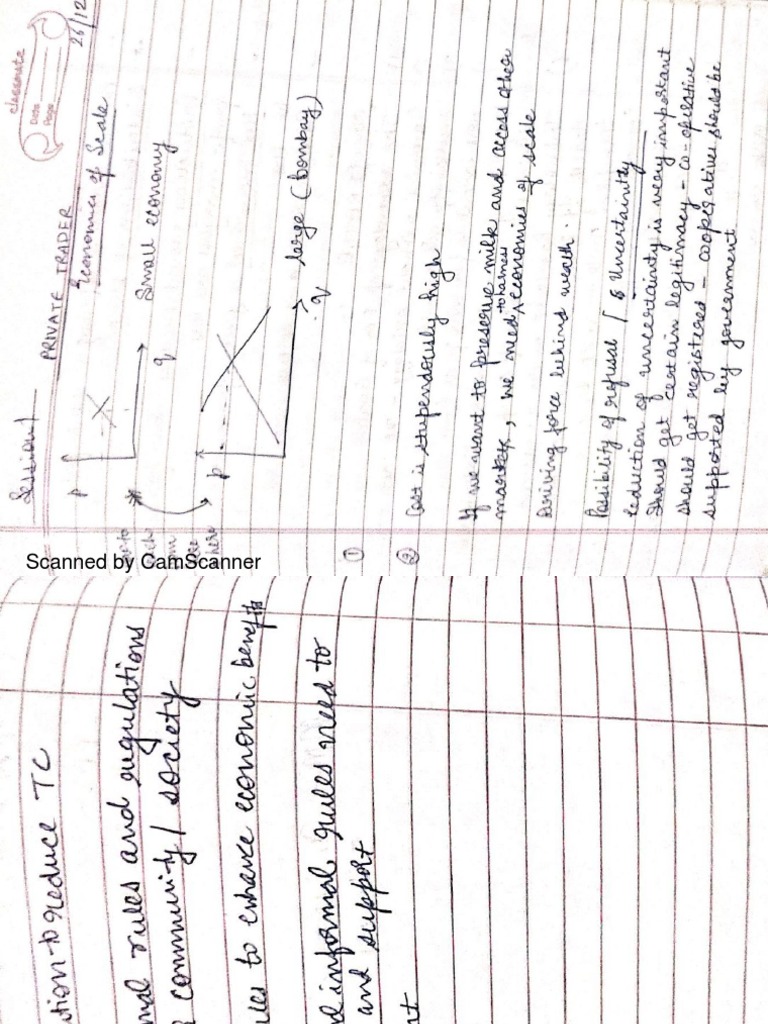 classmate
Date
Page
26/12
Session 1
PRIVATE TRADER
Economics of Scale
p
q
Small economy
here
p
q
large (bombay)
①
② Cost is stupendously high
If we want to preserve milk and access other
market, we need to harness economies of scale
Driving force behind wealth.
Possibility of refusal / Uncertainty
reduction of uncertainty is very important
Should get certain legitimacy - co-operative
should get registered - cooperatives should be
supported by government
Scanned by CamScanner
ution-to reduce TC
mal rules and regulations
community / society
ules to enhance economic benefits
d informal rules need to
and support